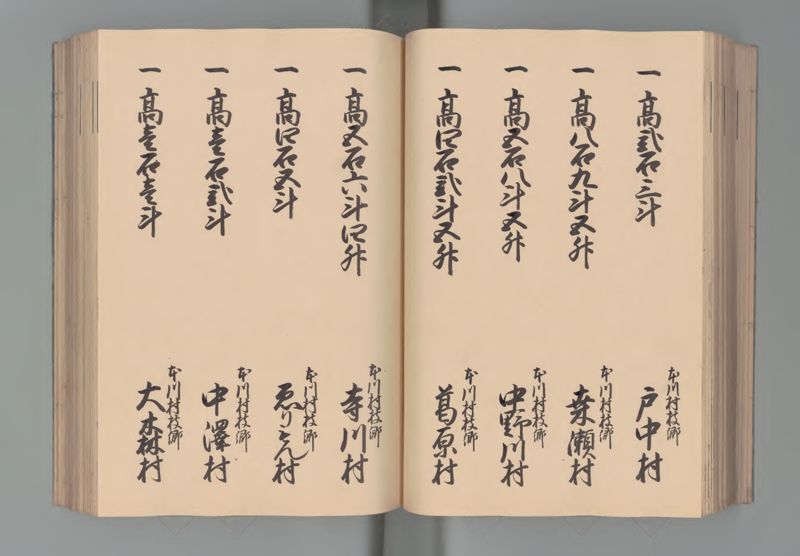 一 高弐石三斗
本川村枝郷
戸中村
一 高八石九斗五升
本川村枝郷
桒瀬村
一 高五石八斗五升
本川村枝郷
中野川村
一 高四石弐斗五升
本川村枝郷
葛原村
一 高五石六斗四升
本川村枝郷
寺川村
一 高四石五斗
本川村枝郷
ゑりもん村
一 高壱石弐斗
本川村枝郷
中澤村
一 高壱石壱斗
本川村枝郷
大森村